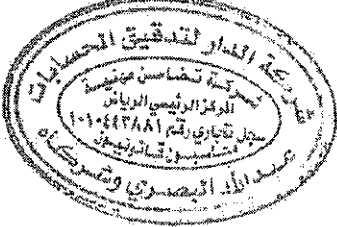 شركة المدار لتدقيق الحسابات
شركة تضامن مهنية
المركز الرئيسي الرياض
سجل تجاري رقم ١٠١٠٤٤٣٨٨١
محاسبون قانونيون
عبدالله البصري وشركاه